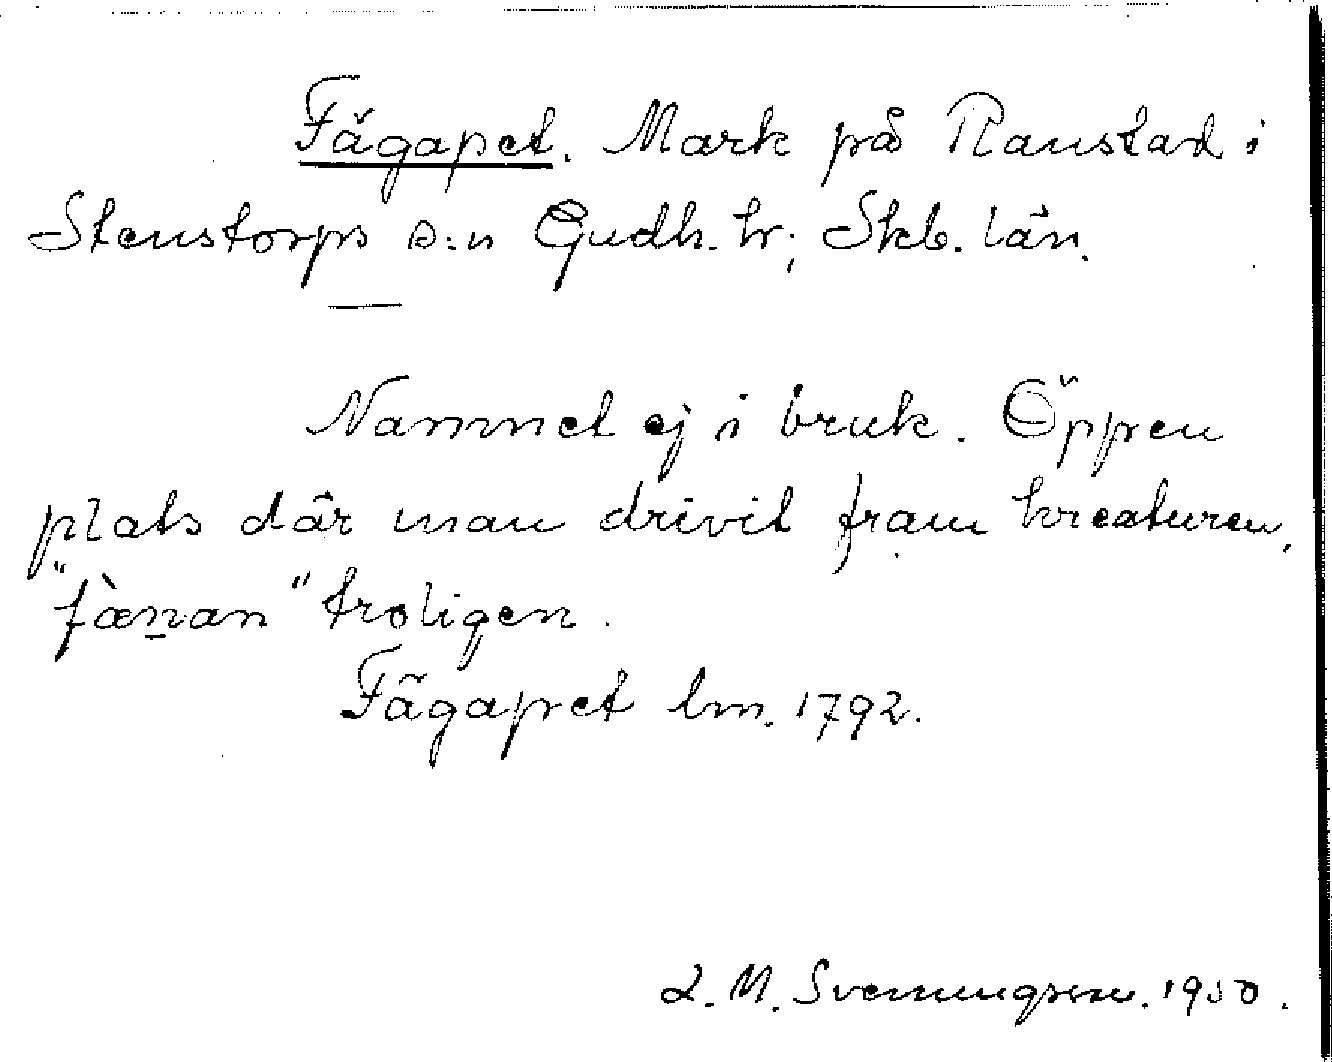 Fägapet. Mark på Ranstad i
Stenstorps s:n Gudh. hr; Skb. län.
Namnet ej i bruk. Öppen
plats där man drivit fram kreaturen,
"fæ̀nan" troligen.
Fägapet lm. 1792.
L. M. Svenungsson. 1950.